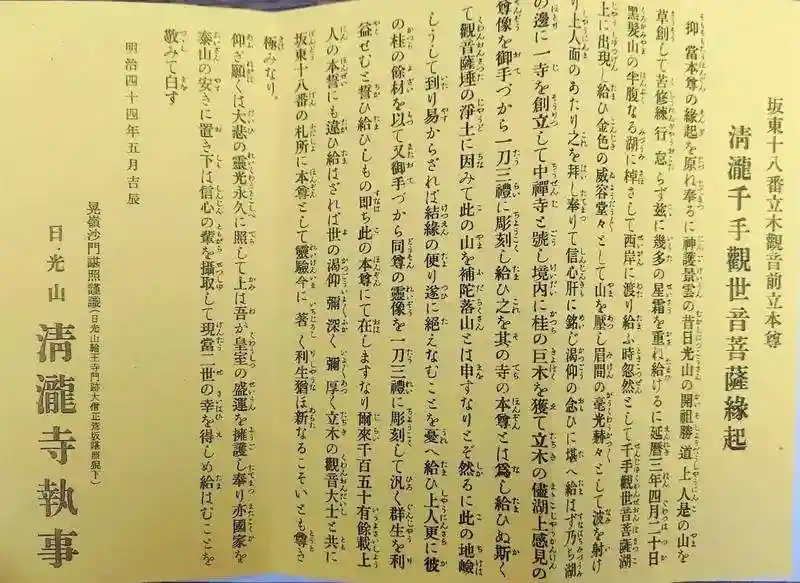 坂東十八番立木觀音前立本尊
清瀧千手觀世音菩薩緣起
抑當本尊の緣起を原ね奉るに神護景雲の昔日光山の開祖勝道上人是の山を
草創して苦修練行怠らず茲に幾多の星霜を重ね給けるに延曆三年四月二十日
黑髮山の半腹なる湖に棹さして西岸に渡り給ふ時忽然として千手觀世音菩薩湖
上に出現し給ひ金色の威容堂々として山を壓し眉間の毫光赫々として波を射け
り上人面のあたり之を拜し奉りて信心肝に銘じ渴仰の念ひに堪へ給はず乃ち湖
の邊に一寺を創立して中禪寺と號し境内に桂の巨木を獲て立木の儘湖上感見の
尊像を御手づから一刀三禮に彫刻し給ひ之を其の寺の本尊とは爲し給ひぬ斯く
て觀音薩埵の淨土に因みて此の山を補陀落山とは申すなりとぞ然るに此の地嶮
しうして到り易からざれば結緣の便り遂に絕えなむことを憂へ給ひ上人更に彼
の桂の餘材を以て又御手づから同尊の靈像を一刀三禮に彫刻して汎く群生を利
益せむと誓ひ給ひしもの即ち此の本尊にて在しますなり爾來千百五十有餘載上
人の本誓にも違ひ給はざれば世の渴仰彌深く彌厚く立木の觀音大士と共に
坂東十八番の札所に本尊として靈驗今に著く利生猶ほ新なるこそいとも尊き
極みなり。
仰ぎ願くは大悲の靈光永久に照して上は吾が皇室の盛運を擁護し奉り亦國家を
泰山の安きに置き下は信心の輩を攝取して現當二世の幸を得しめ給はむことを
敬みて白す
明治四十四年五月吉辰
晃嶺沙門諶照謹識(日光山輪王寺門跡大僧正彥坂諶照猊下)
日光山 清瀧寺執事